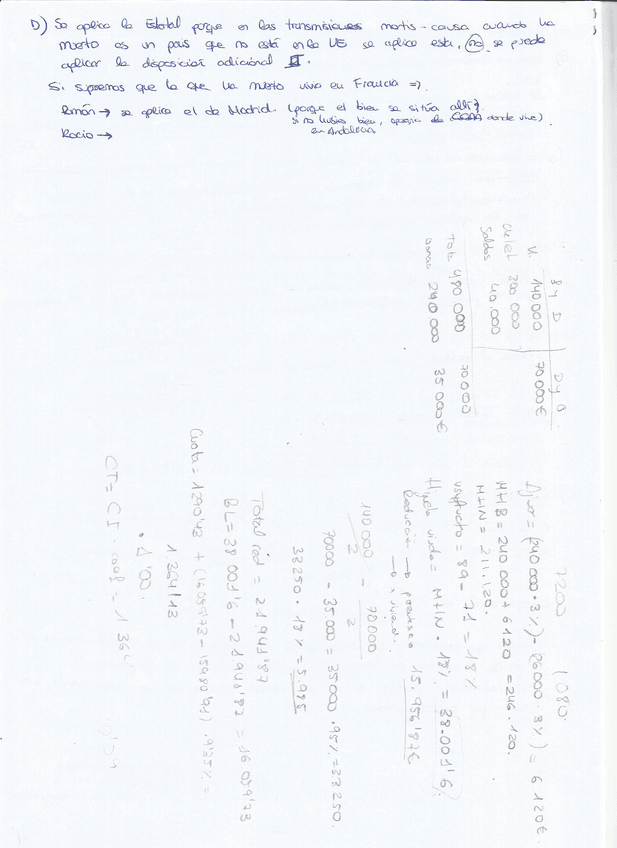 D) Se aplica la Estatal porque en las transmisiones mortis-causa cuando ha
muerto es un pais que no está en la UE se aplica esta, no se puede
aplicar la disposición adicional II.
Si suponemos que la que ha muerto viva en Francia =>
Ramón → se aplica el de Madrid. (porque el bien se sitúa allí).
si no hubiera bien, de CCAA donde vive)
en Andalucía
Rocío →
By D DyB
V. 140000 70000€
300 000
Saldos 40.000
Total 480 000 70 000
240 000 35 000€
7200 1.080
Ajuar = (240000 · 3%) - (36000 · 3%) = 6120€
MHB = 240 000 + 6120 = 246.120.
MHN = 211.120.
Usufructo = 89 - 71 = 18%
viuda = MHN · 18% = 38.001'6
Reducción → parentesco 15.956'87€
→ vivienda.
140000/2 - 70000/2
70000 - 35000 = 35000 · 95% = 33250.
33250 · 18% = 5.985
Total red = 21941'87
BL = 38001'6 - 21941'87 = 16059'73
Cuota = 1290'43 + (16059'73 - 15980'91) · 9'35% =
1.
CT = CI · coef =